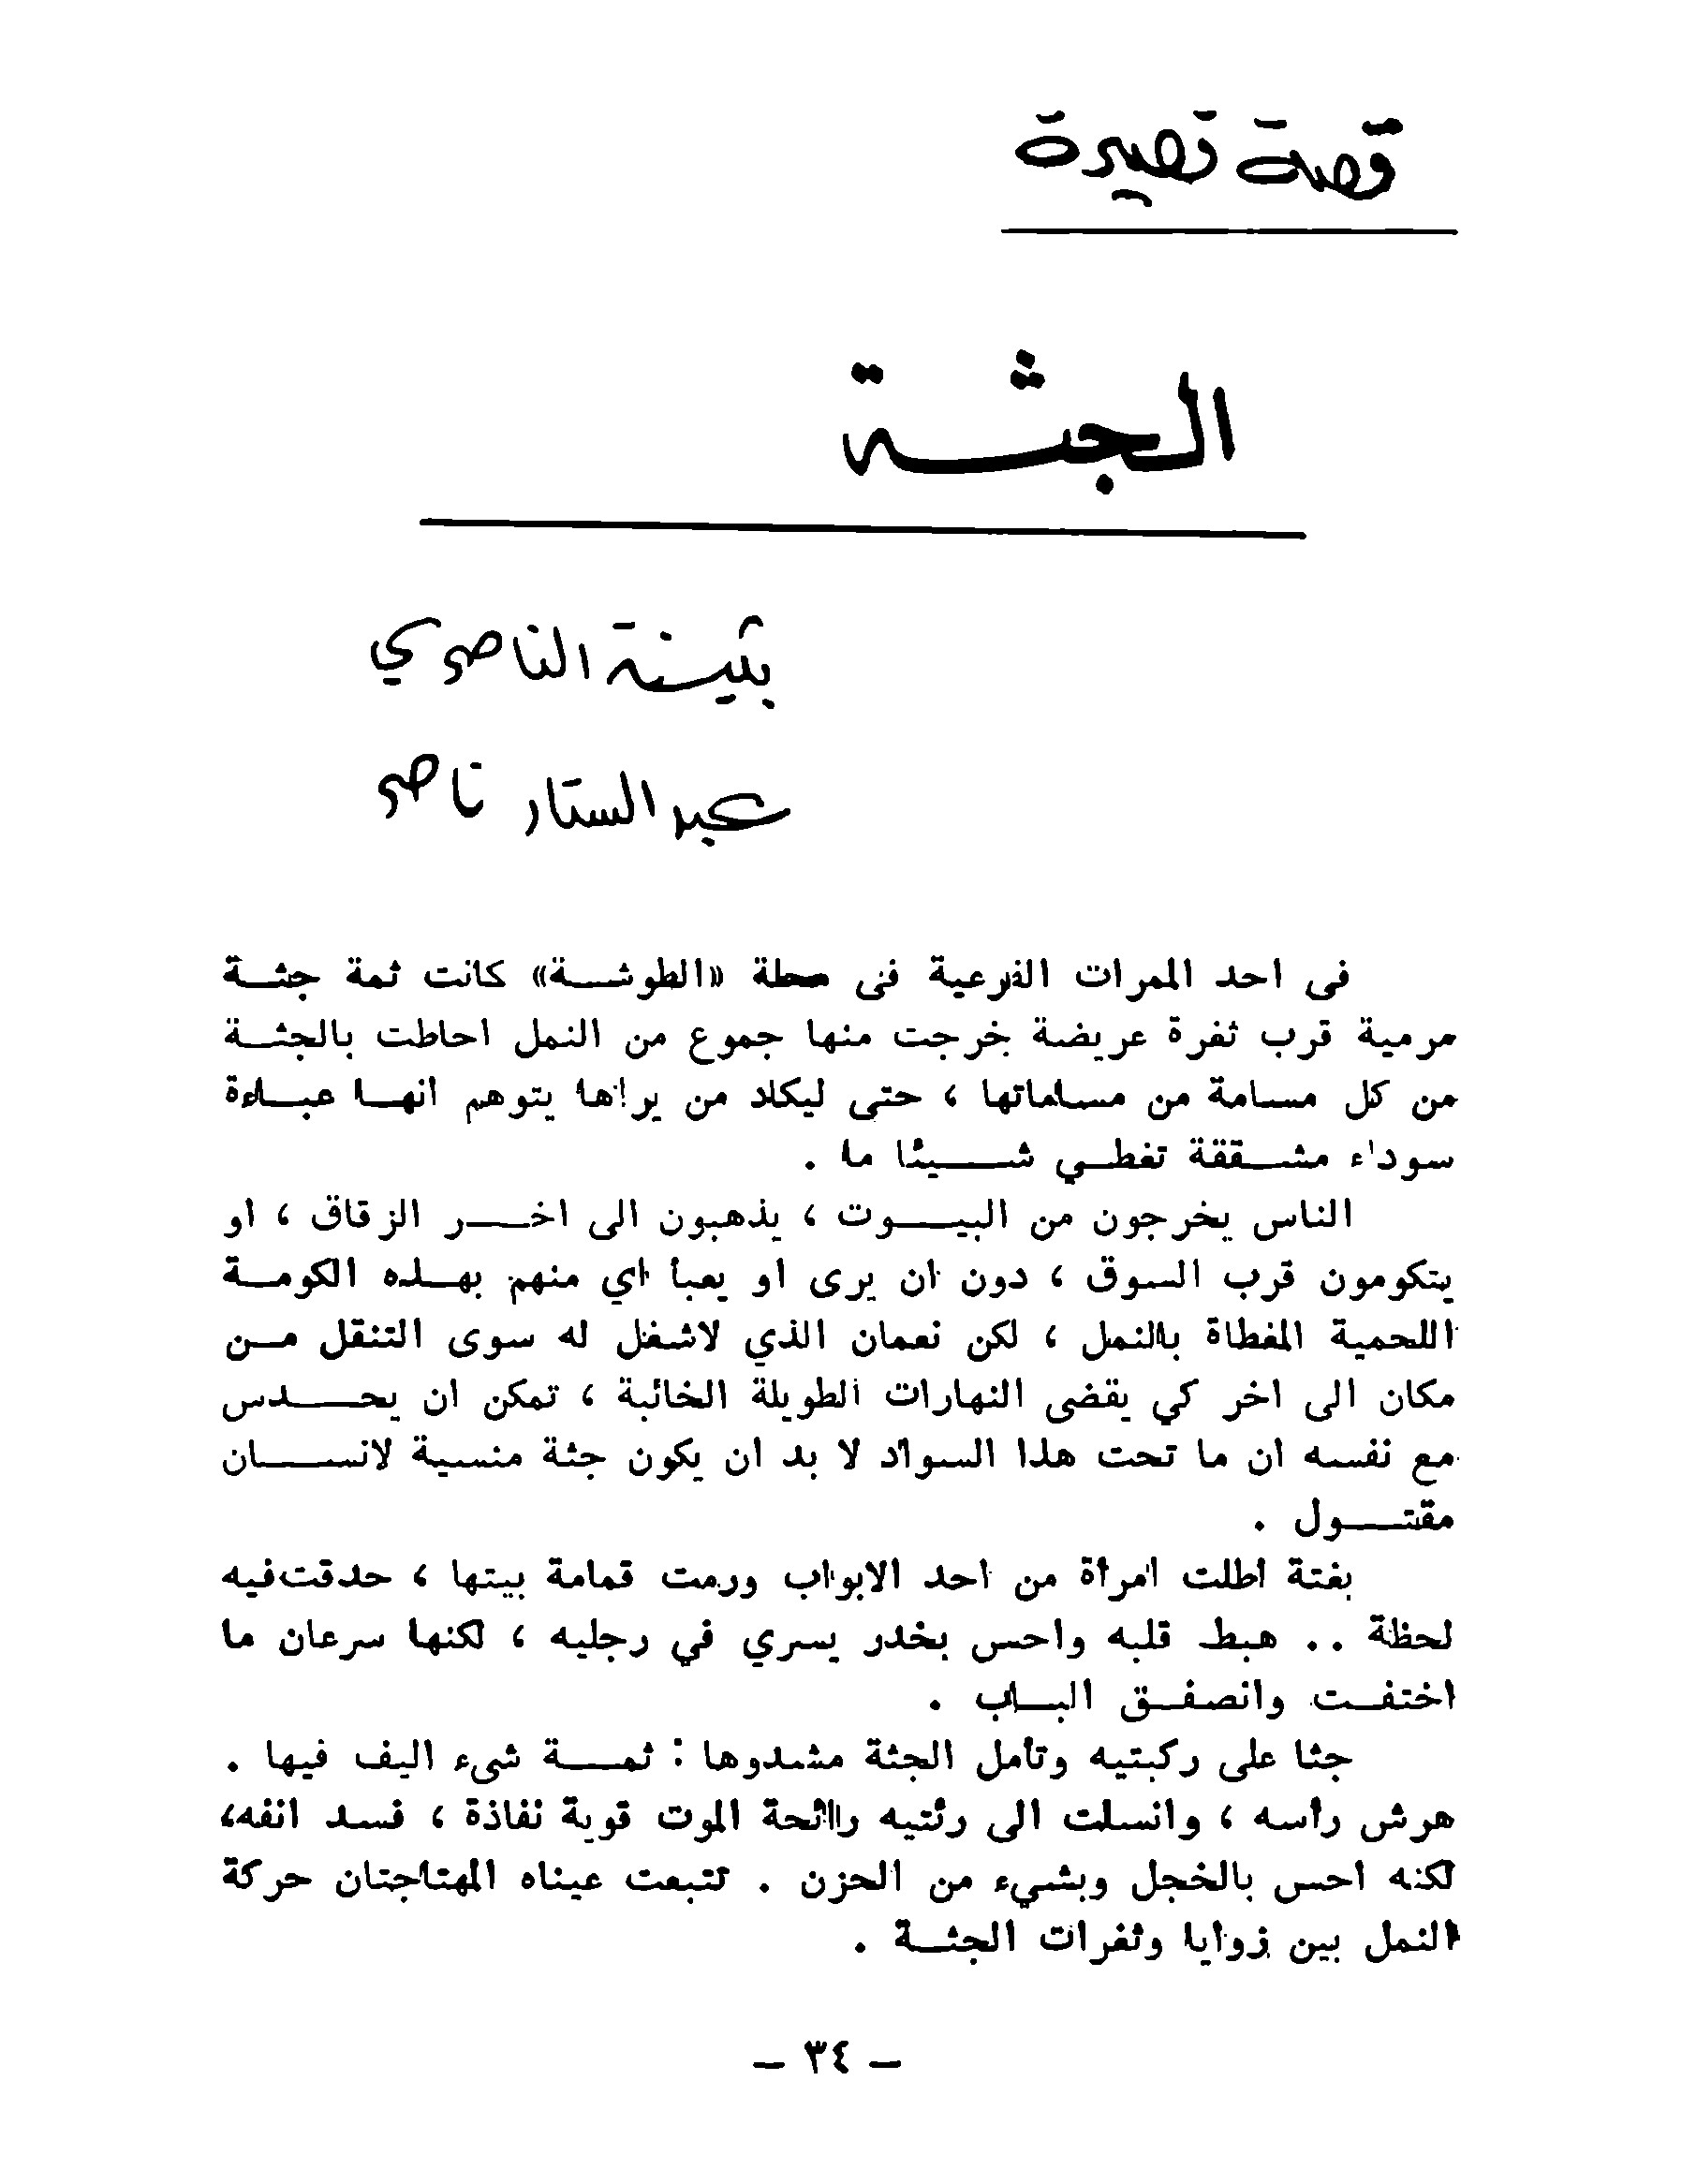 قصة قصيرة
الجثة
بثينة الناصري
عبد الستار ناصر
فى احد الممرات الفرعية فى محلة «الطوشة» كانت ثمة جثة
مرمية قرب ثغرة عريضة خرجت منها جموع من النمل احاطت بالجثة
من كل مسامة من مساماتها ، حتى ليكاد من يراها يتوهم انها عباءة
سوداء مشققة تغطي شيئا ما .
الناس يخرجون من البيوت ، يذهبون الى اخر الزقاق ، او
يتكومون قرب السوق ، دون ان يرى او يعبأ اي منهم بهذه الكومة
اللحمية المغطاة بالنمل ، لكن نعمان الذي لاشغل له سوى التنقل من
مكان الى اخر كي يقضى النهارات الطويلة الخائبة ، تمكن ان يحدس
مع نفسه ان ما تحت هذا السواد لا بد ان يكون جثة منسية لانسان
مقتول .
بغتة اطلت امرأة من احد الابواب ورمت قمامة بيتها ، حدقت فيه
لحظة .. هبط قلبه واحس بخدر يسري في رجليه ، لكنها سرعان ما
اختفت وانصفق الباب .
جثا على ركبتيه وتأمل الجثة مشدوها : ثمة شىء اليف فيها .
هرش رأسه ، وانسلت الى رئتيه رائحة الموت قوية نفاذة ، فسد انفه،
لكنه احس بالخجل وبشيء من الحزن . تتبعت عيناه المهتاجتان حركة
النمل بين زوايا وثغرات الجثة .
– ٣٤ –